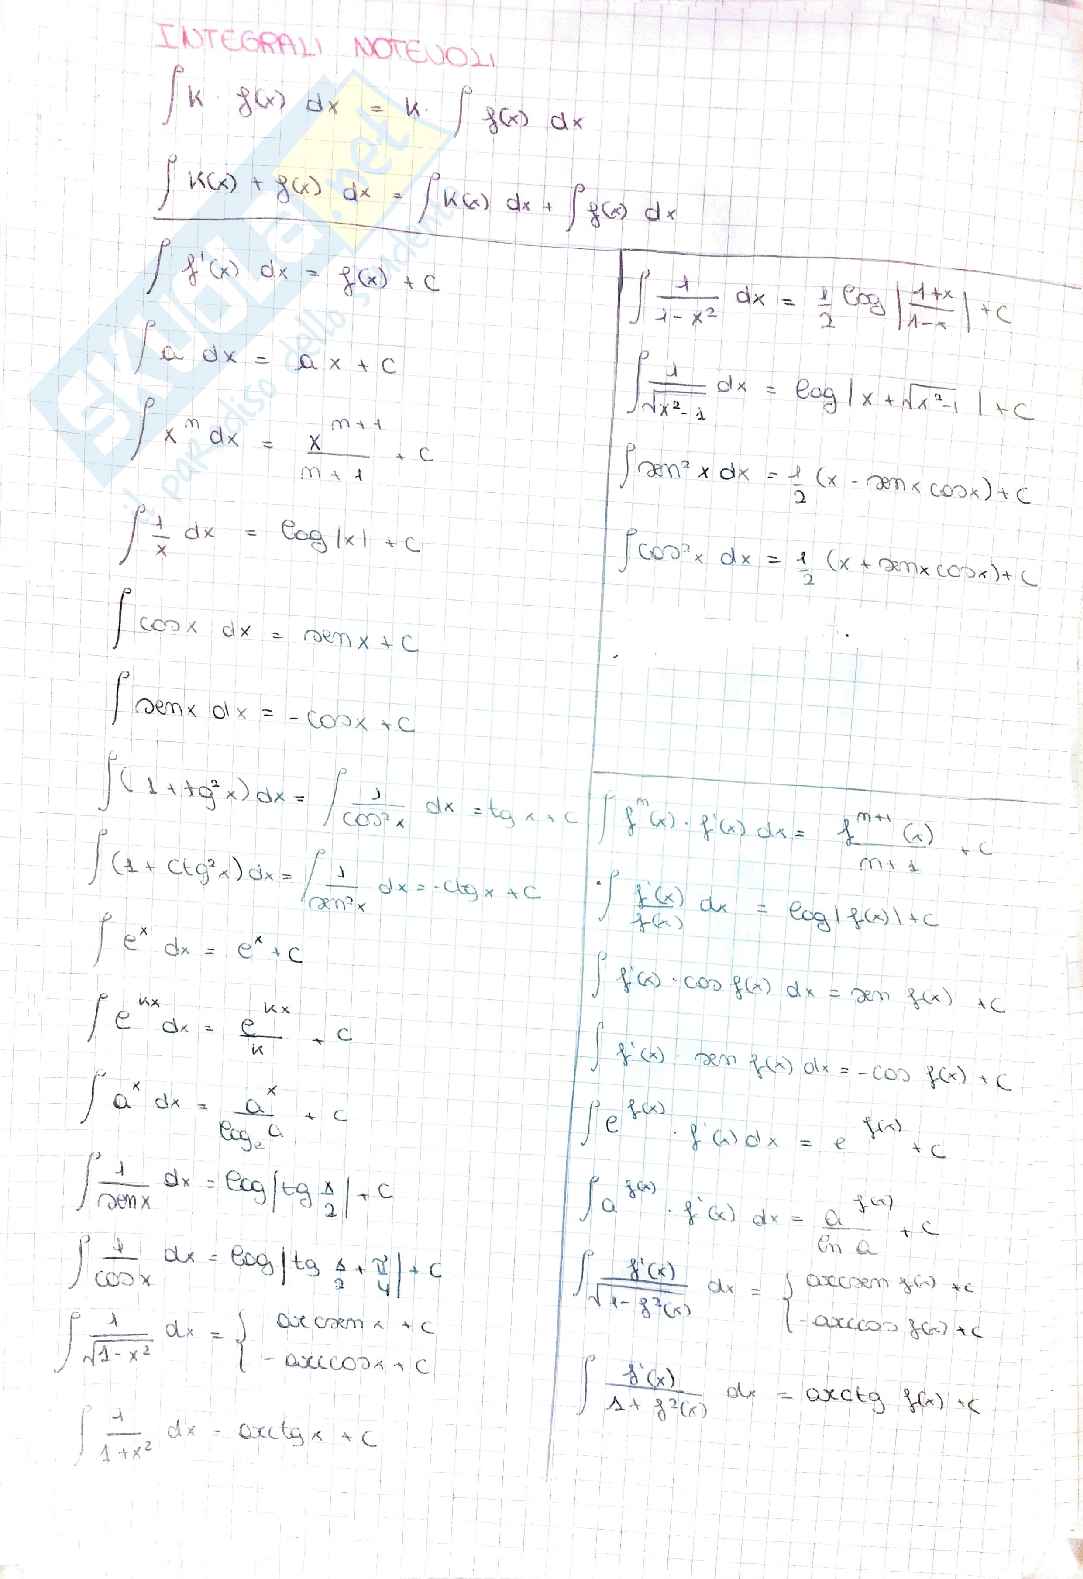 INTEGRALI NOTEVOLI
∫ K · f(x) dx = K · ∫ f(x) dx
∫ K(x) + f(x) dx = ∫ K(x) dx + ∫ f(x) dx
∫ f'(x) dx = f(x) + C
∫ a dx = ax + C
∫ xⁿ dx = xⁿ⁺¹/(n+1) + C
∫ 1/x dx = log|x| + C
∫ cosx dx = senx + C
∫ senx dx = -cosx + C
∫ (1+tg²x) dx = ∫ 1/cos²x dx = tgx + C
∫ (1+ctg²x) dx = ∫ 1/sen²x dx = -ctgx + C
∫ eˣ dx = eˣ + C
∫ e^(kx) dx = e^(kx)/k + C
∫ aˣ dx = aˣ/logₑa + C
∫ 1/senx dx = log|tg x/2| + C
∫ 1/cosx dx = log|tg x/2 + π/4| + C
∫ 1/√(1-x²) dx = { arcsenx + C
-arccosx + C
∫ 1/(1+x²) dx = arctgx + C
∫ 1/(1-x²) dx = 1/2 log|(1+x)/(1-x)| + C
∫ 1/√(x²-1) dx = log|x+√(x²-1)| + C
∫ sen²x dx = 1/2 (x - senx cosx) + C
∫ cos²x dx = 1/2 (x + senx cosx) + C
∫ fⁿ(x) · f'(x) dx = fⁿ⁺¹(x)/(n+1) + C
∫ f'(x)/f(x) dx = log|f(x)| + C
∫ f'(x) · cos f(x) dx = sen f(x) + C
∫ f'(x) · sen f(x) dx = -cos f(x) + C
∫ e^(f(x)) · f'(x) dx = e^(f(x)) + C
∫ a^(f(x)) · f'(x) dx = a^(f(x))/ln a + C
∫ f'(x)/√(1-f²(x)) dx = { arcsen f(x) + C
-arccos f(x) + C
∫ f'(x)/(1+f²(x)) dx = arctg f(x) + C
SKUOLA.net
il paradiso dello studente